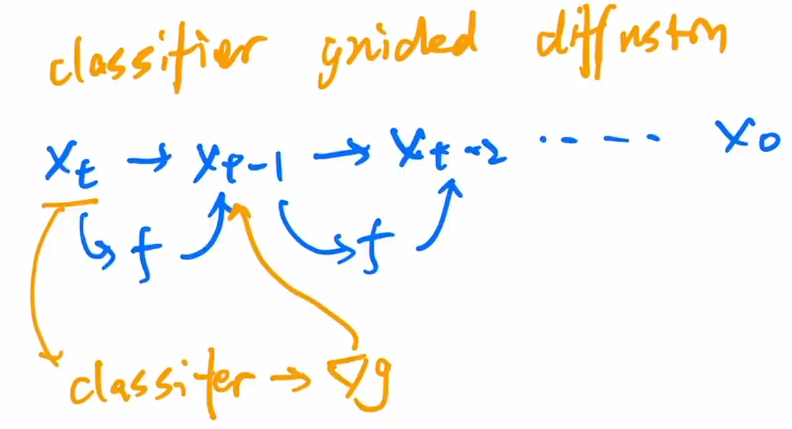 classifier guided diffusion
Xt → Xt-1 → Xt-2 ..... X0
f f
classifer → ∇g